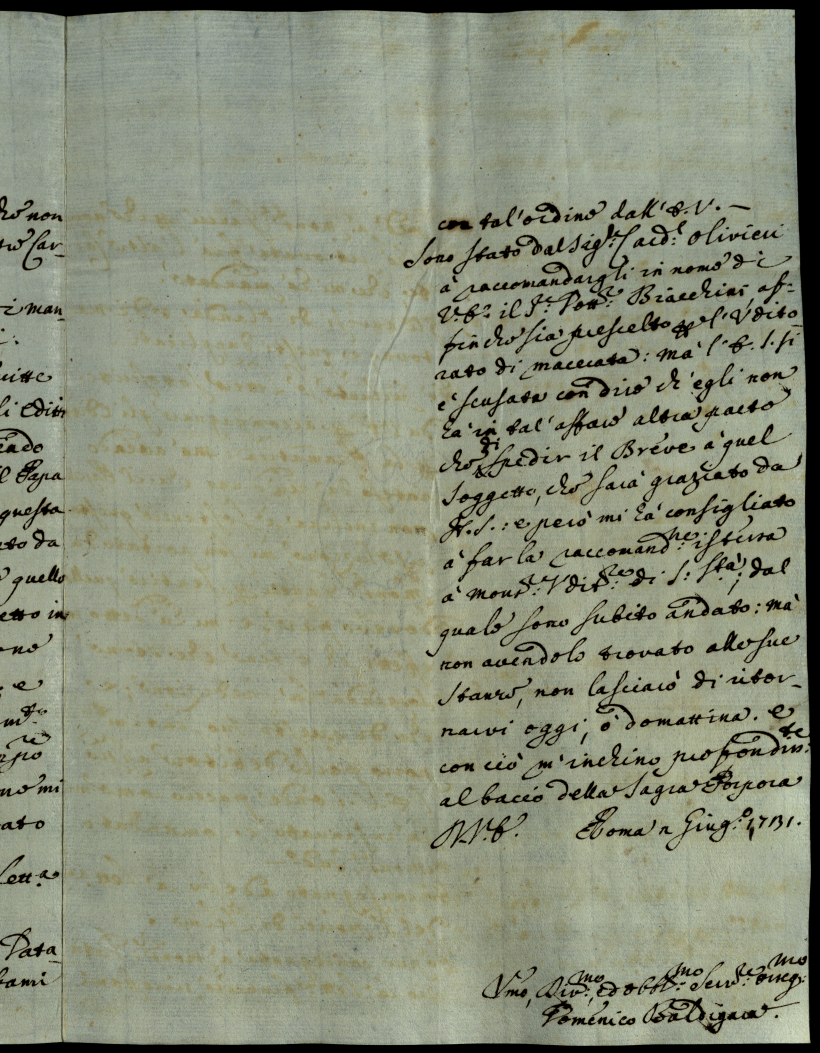 non
Car-
man-
Edit
Papa
questa
ato da
quello
etto in
e
mi
ato
Lett.a
con tal'ordine dall'E.V. —
Sono stato dal Sig.r Card.l Olivieri
à raccomandargli in nome di
V.E. il S.r Dott.re Biacchini, af-
finche sia prescelto per l'Vdito-
rato di macerata: mà l'E.S. si
è scusata con dire ch'egli non
hà in tal'affare altra parte
che di spedir il Breve à quel
soggetto, che sarà graziato da
N.S.: e però mi hà consigliato
à far la raccomand.ne istessa
à mons.r Vdit.re di S. S.tà, dal
quale sono subito andato: mà
non avendolo trovato alle sue
stanze, non lasciarò di ritor-
narvi oggi, ò domattina. e
con ciò m'inchino profondm.te
al bacio della Sagra Porpora
Di V.E. Roma 2 Giug.o 1731.
Vmo, Div.mo, ed obbl.mo Serv.re osseq.mo
Domenico Baldigara.